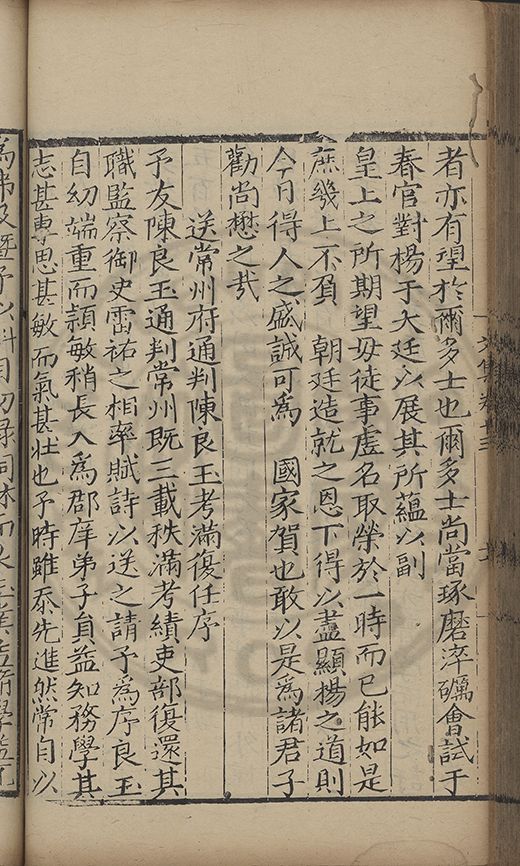 者亦有望於爾多士也爾多士尚當琢磨淬礪會試于
春官對楊于大廷以展其所蘊以副
皇上之所期望毋徒事虛名取榮於一時而已能如是
庶幾上不負　朝廷造就之恩下得以盡顯揚之道則
今日得人之盛誠可為　國家賀也敢以是為諸君子
勸尚懋之哉
送常州府通判陳良玉考滿復任序
予友陳良玉通判常州既三載秩滿考績吏部復還其
職監察御史雷祐之相率賦詩以送之請予為序良玉
自幼端重而頴敏稍長入為郡庠弟子員益知務學其
志甚專思甚敏而氣甚壯也予時雖忝先進然常自以